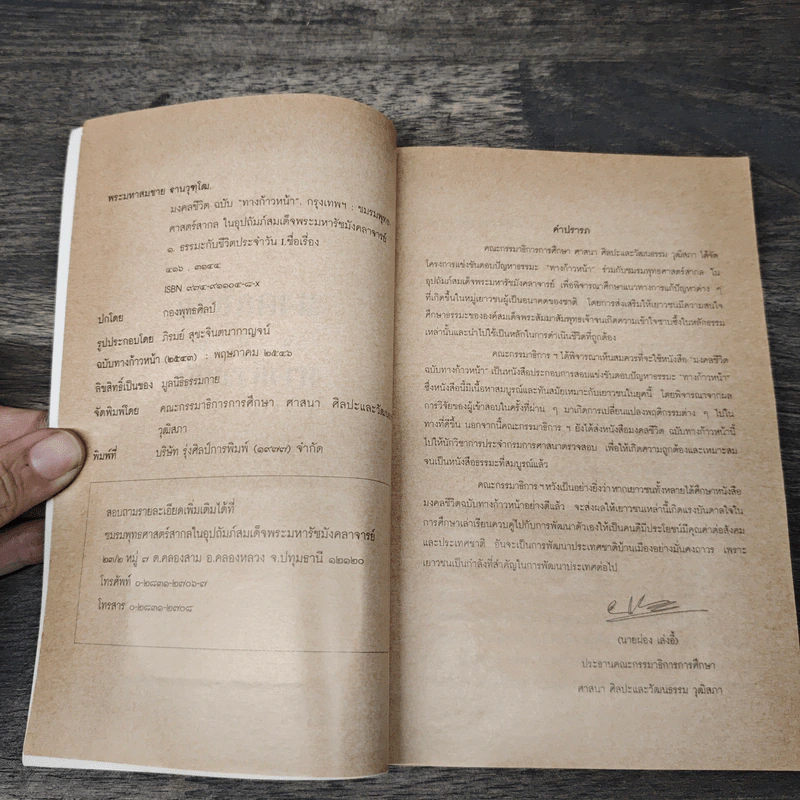 พระมหาสมชาย ฐานวุฑฺโฒ.
มงคลชีวิต ฉบับ "ทางก้าวหน้า". กรุงเทพฯ : ชมรมพุทธ
ศาสตร์สากล ในอุปถัมภ์สมเด็จพระมหารัชมังคลาจารย์
๑. ธรรมะกับชีวิตประจำวัน I.ชื่อเรื่อง
๔๑๖ . ๓๑๔๔
ISBN ๙๗๔-๙๑๑๐๔-๘-X
ปกโดย กองพุทธศิลป์
รูปประกอบโดย ภิรมย์ สุขะจินตนากาญจน์
ฉบับทางก้าวหน้า (๒๕๔๓) : พฤษภาคม ๒๕๔๖
ลิขสิทธิ์เป็นของ มูลนิธิธรรมกาย
จัดพิมพ์โดย คณะกรรมาธิการการศึกษา ศาสนา ศิลปะและวัฒนธรรม
วุฒิสภา
พิมพ์ที่ บริษัท รุ่งศิลป์การพิมพ์ (๑๙๗๗) จำกัด
สอบถามรายละเอียดเพิ่มเติมได้ที่
ชมรมพุทธศาสตร์สากลในอุปถัมภ์สมเด็จพระมหารัชมังคลาจารย์
๒๓/๒ หมู่ ๗ ต.คลองสาม อ.คลองหลวง จ.ปทุมธานี ๑๒๑๒๐
โทรศัพท์ ๐-๒๘๓๑-๒๗๐๖-๗
โทรสาร ๐-๒๘๓๑-๒๗๐๘
คำปรารภ
คณะกรรมาธิการการศึกษา ศาสนา ศิลปะและวัฒนธรรม วุฒิสภา ได้จัด
โครงการแข่งขันตอบปัญหาธรรมะ "ทางก้าวหน้า" ร่วมกับชมรมพุทธศาสตร์สากล ใน
อุปถัมภ์สมเด็จพระมหารัชมังคลาจารย์ เพื่อพิจารณาศึกษาแนวทางการแก้ปัญหาต่าง ๆ
ที่เกิดขึ้นในหมู่เยาวชนผู้เป็นอนาคตของชาติ โดยการส่งเสริมให้เยาวชนมีความสนใจ
ศึกษาธรรมะขององค์สมเด็จพระสัมมาสัมพุทธเจ้าจนเกิดความเข้าใจซาบซึ้งในหลักธรรม
เหล่านั้นและนำไปใช้เป็นหลักในการดำเนินชีวิตที่ถูกต้อง
คณะกรรมาธิการ ฯ ได้พิจารณาเห็นสมควรที่จะใช้หนังสือ "มงคลชีวิต
ฉบับทางก้าวหน้า" เป็นหนังสือประกอบการสอบแข่งขันตอบปัญหาธรรมะ "ทางก้าวหน้า"
ซึ่งหนังสือนี้มีเนื้อหาสมบูรณ์และทันสมัยเหมาะกับเยาวชนในยุคนี้ โดยพิจารณาจากผล
การวิจัยของผู้เข้าสอบในครั้งที่ผ่าน ๆ มาเกิดการเปลี่ยนแปลงพฤติกรรมต่าง ๆ ไปใน
ทางที่ดีขึ้น นอกจากนี้คณะกรรมาธิการ ฯ ยังได้ส่งหนังสือมงคลชีวิต ฉบับทางก้าวหน้านี้
ไปให้นักวิชาการประจำกรมการศาสนาตรวจสอบ เพื่อให้เกิดความถูกต้องและเหมาะสม
จนเป็นหนังสือธรรมะที่สมบูรณ์แล้ว
คณะกรรมาธิการ ฯ หวังเป็นอย่างยิ่งว่าหากเยาวชนทั้งหลายได้ศึกษาหนังสือ
มงคลชีวิตฉบับทางก้าวหน้าอย่างดีแล้ว จะส่งผลให้เยาวชนเหล่านี้เกิดแรงบันดาลใจใน
การศึกษาเล่าเรียนควบคู่ไปกับการพัฒนาตัวเองให้เป็นคนดีมีประโยชน์มีคุณค่าต่อสังคม
และประเทศชาติ อันจะเป็นการพัฒนาประเทศชาติบ้านเมืองอย่างมั่นคงถาวร เพราะ
เยาวชนเป็นกำลังที่สำคัญในการพัฒนาประเทศต่อไป
(นายผ่อง เล่งอี้)
ประธานคณะกรรมาธิการการศึกษา
ศาสนา ศิลปะและวัฒนธรรม วุฒิสภา